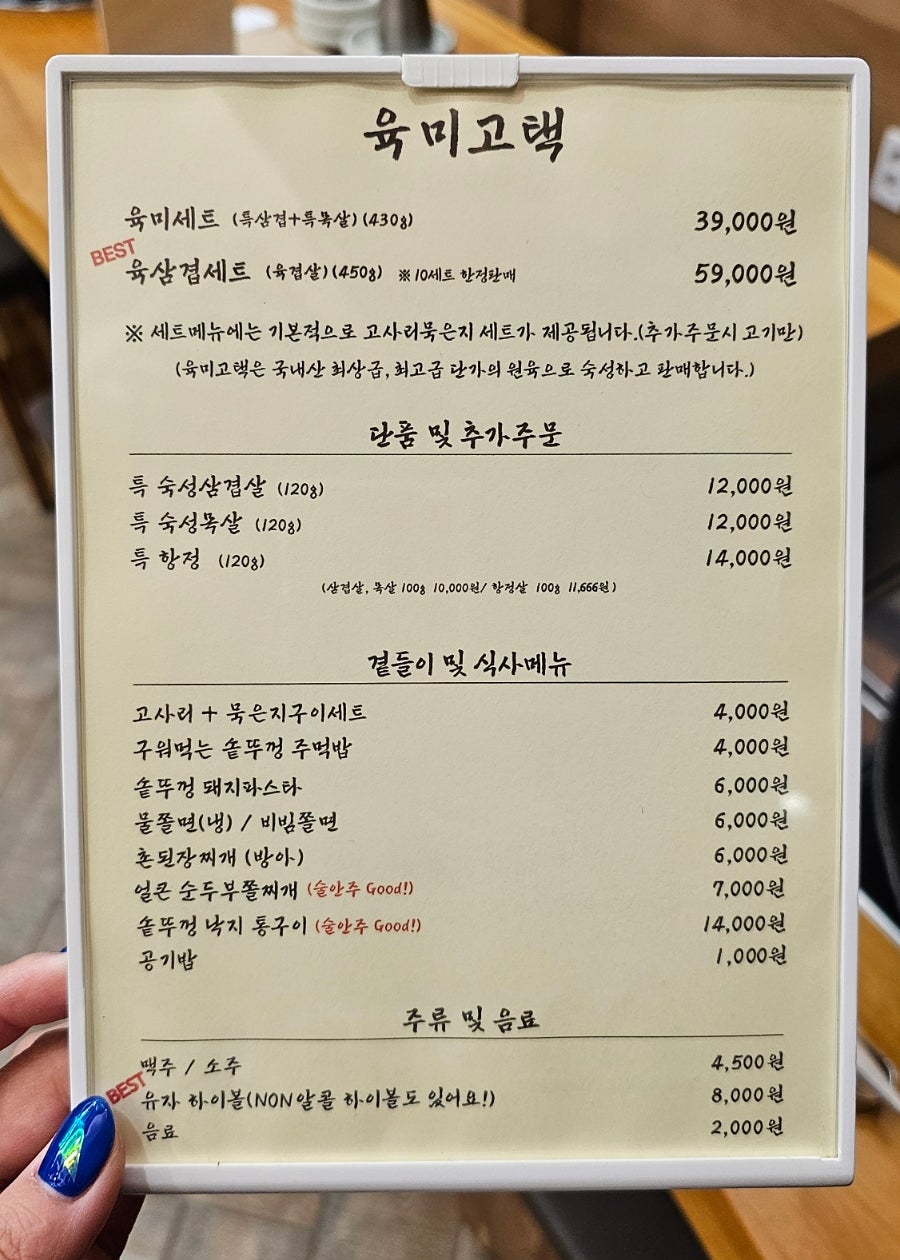 육미고택
육미세트 (특삼겹+특목살)(430g) 39,000원
BEST
육삼겹세트 (육겹살)(450g) ※10세트 한정판매 59,000원
※ 세트메뉴에는 기본적으로 고사리묵은지 세트가 제공됩니다.(추가주문시 고기만)
(육미고택은 국내산 최상급, 최고급 단가의 원육으로 숙성하고 판매합니다.)
단품 및 추가주문
특 숙성삼겹살 (120g) 12,000원
특 숙성목살 (120g) 12,000원
특 항정 (120g) 14,000원
(삼겹살, 목살 100g 10,000원/ 항정살 100g 11,666원)
곁들이 및 식사메뉴
고사리 + 묵은지구이세트 4,000원
구워먹는 솥뚜껑 주먹밥 4,000원
솥뚜껑 돼지파스타 6,000원
물쫄면(냉) / 비빔쫄면 6,000원
촌된장찌개 (방아) 6,000원
얼큰 순두부쫄찌개 (술안주 Good!) 7,000원
솥뚜껑 낙지 통구이 (술안주 Good!) 14,000원
공기밥 1,000원
주류 및 음료
맥주 / 소주 4,500원
BEST
유자 하이볼(NON알콜 하이볼도 있어요!) 8,000원
음료 2,000원